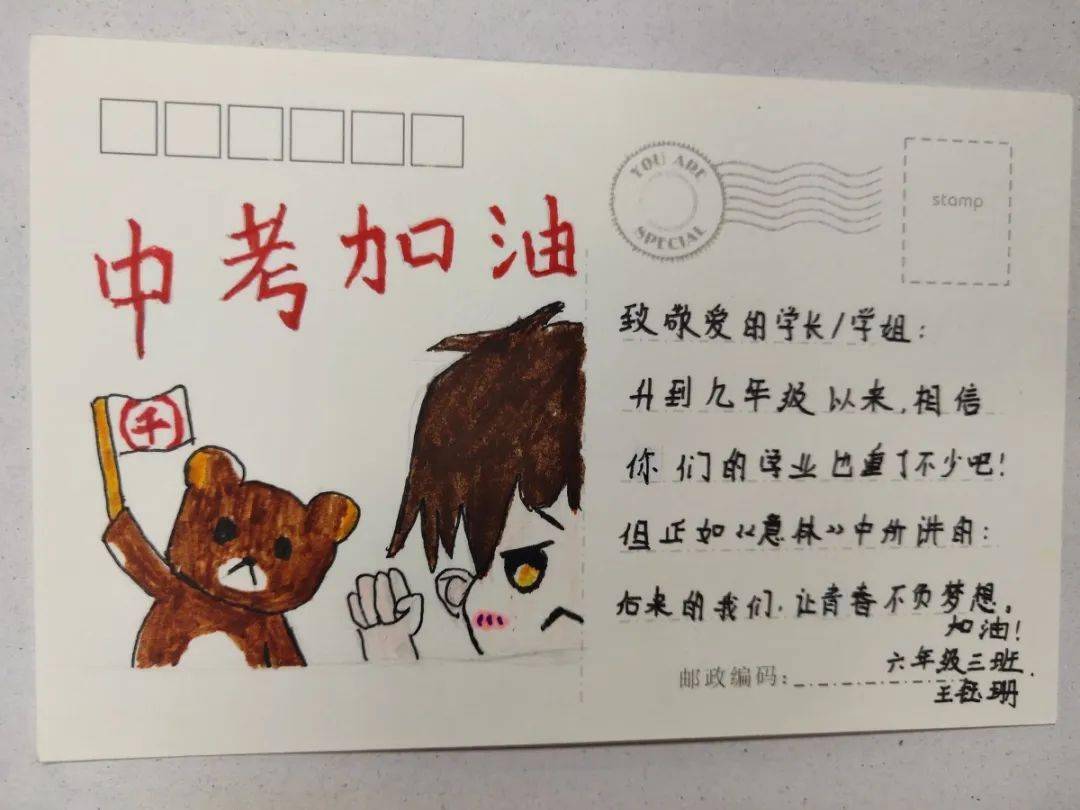 中考加油
千
YOU ARE
SPECIAL
stamp
致敬爱的学长/学姐：
升到九年级以来，相信
你们的学业也重了不少吧！
但正如《意林》中所讲的：
后来的我们，让青春不负梦想。
加油！
邮政编码：
六年级三班
王钰珊